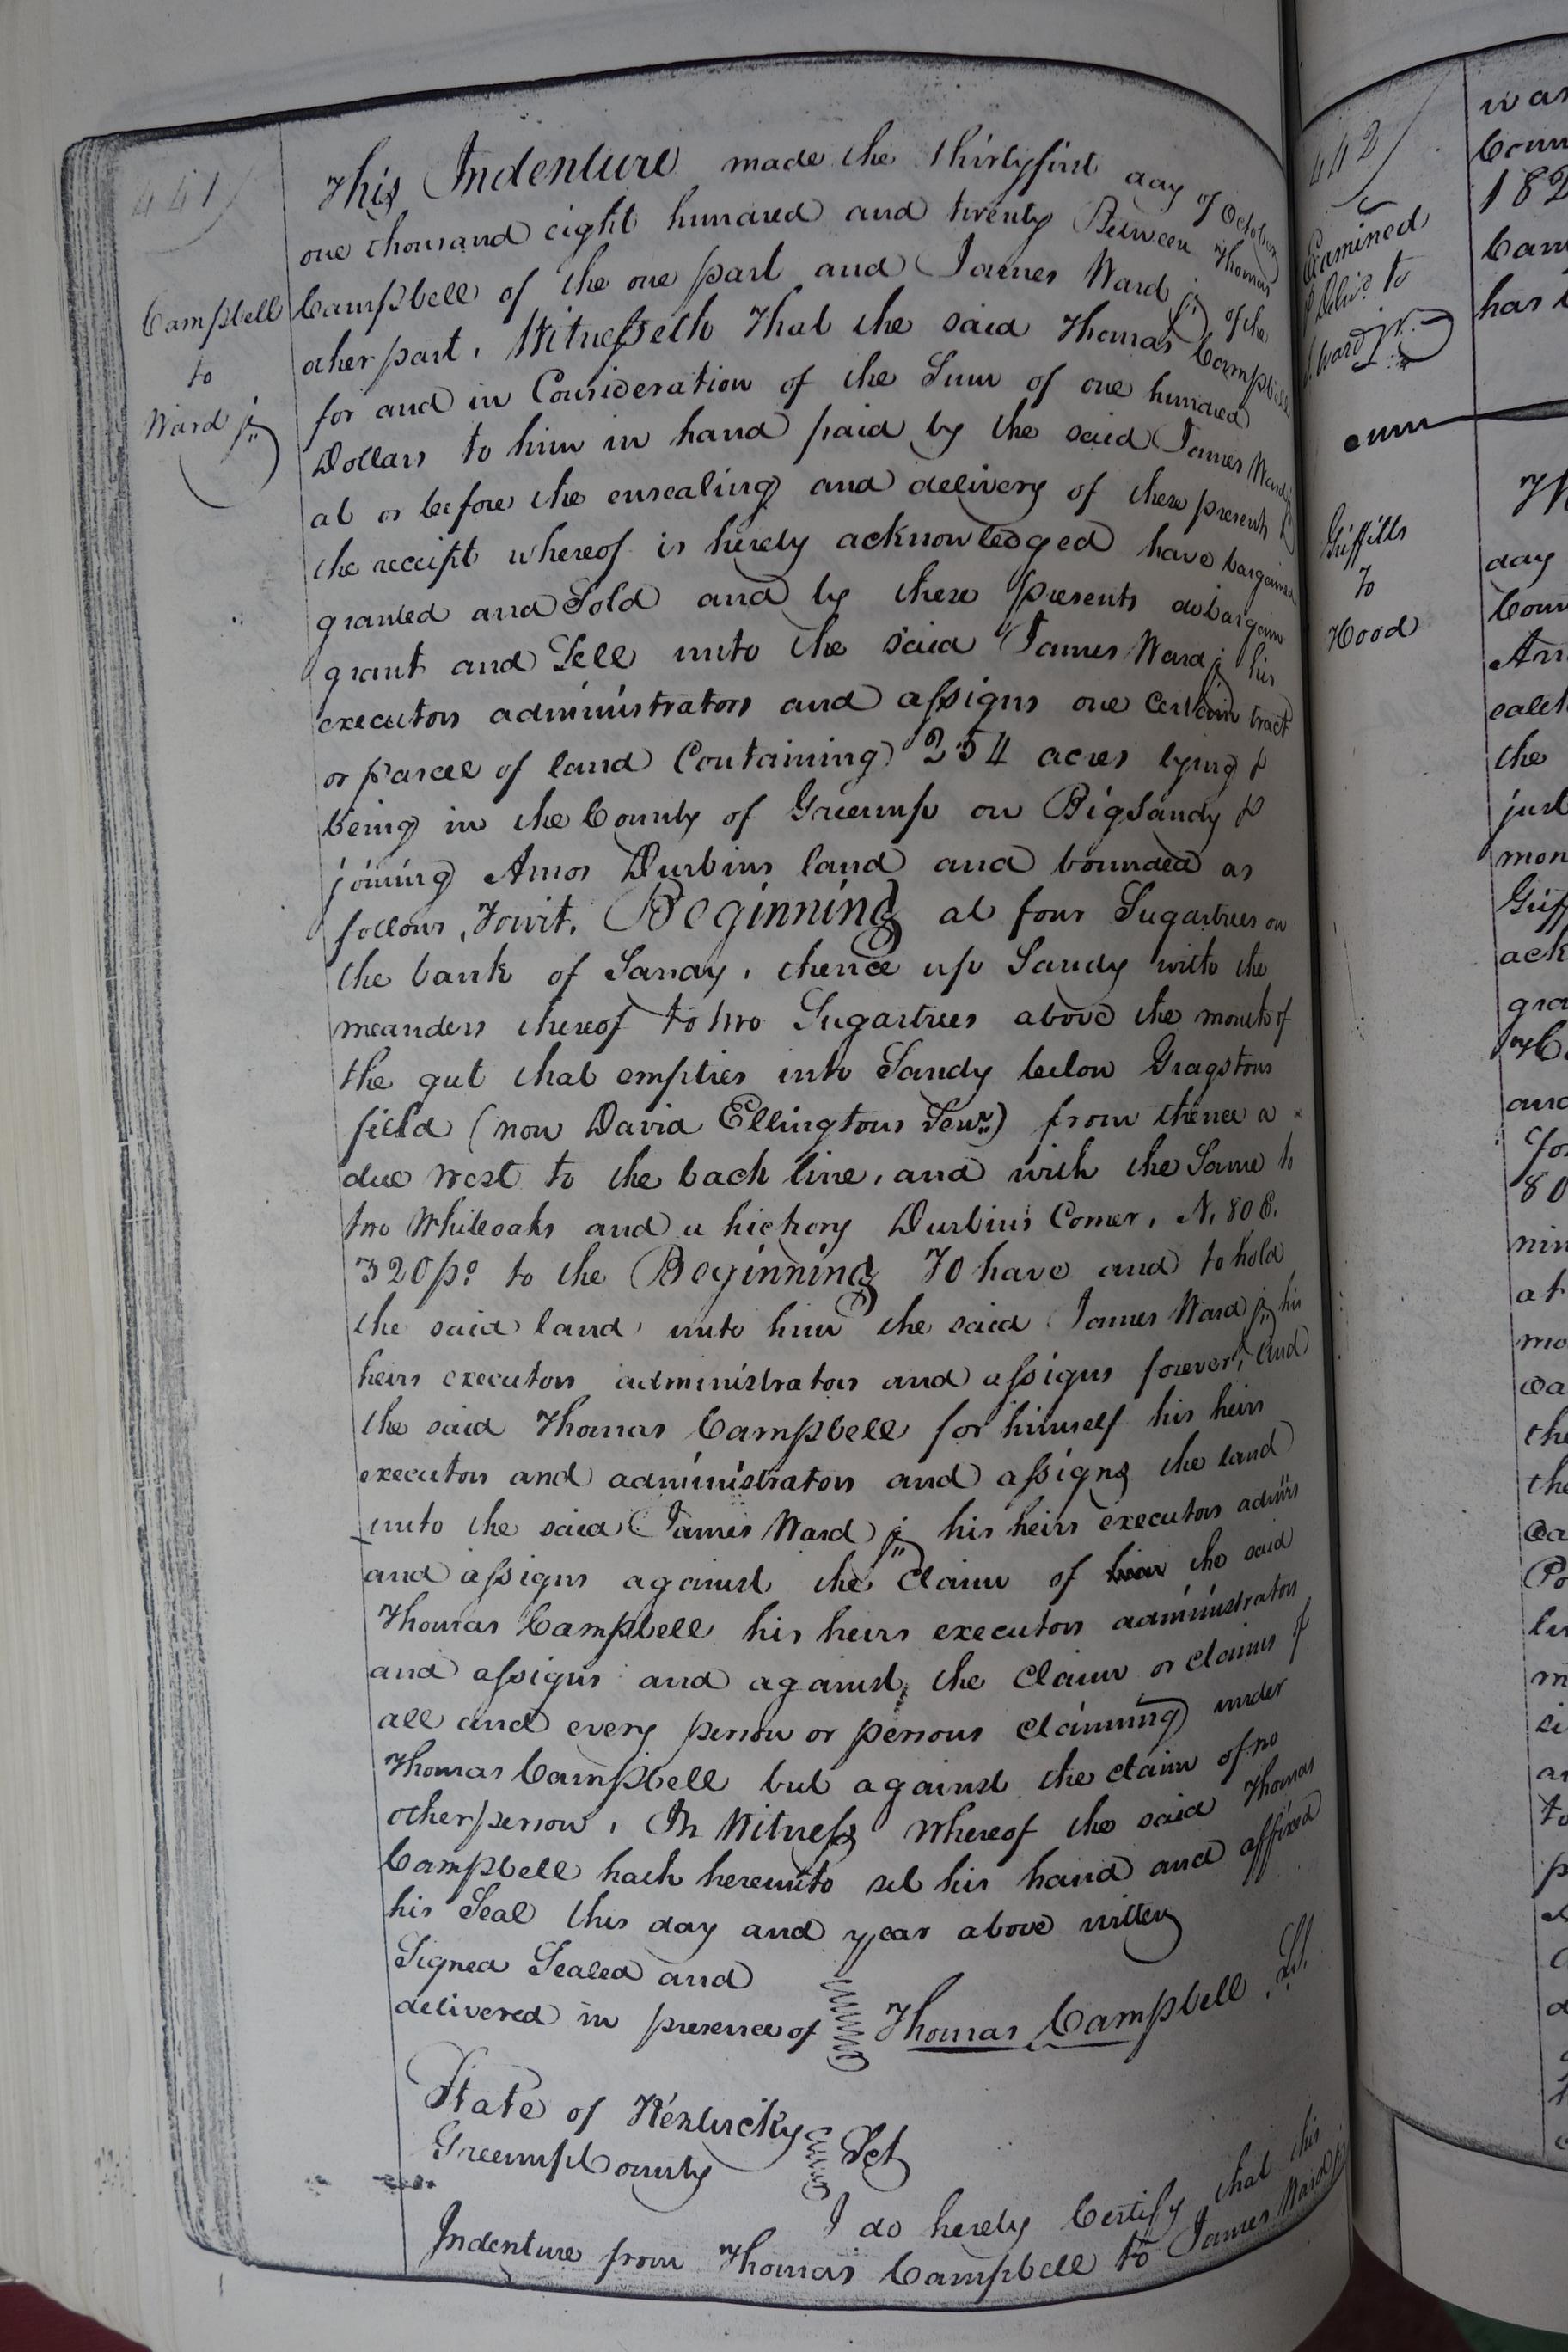 441
Campbell
to
Ward jr
This Indenture made the thirtyfirst day of October
one thousand eight hundred and twenty Between Thomas
Campbell of the one part and James Ward jr of the
other part, Witnesseth That the said Thomas Campbell
for and in Consideration of the Sum of one hundred
Dollars to him in hand paid by the said James Ward jr
at or before the ensealing and delivery of these presents
the receipt whereof is hereby acknowledged have bargained
granted and Sold and by these presents do bargain
grant and Sell unto the said James Ward jr his
executors administrators and assigns one certain tract
or parcel of land Containing 254 acres lying &
being in the County of Greenup on Big Sandy &
joining Amos Durbins land and bounded as
follows, Towit, Beginning at four Sugartrees on
the bank of Sanday, thence up Sandy with the
meanders thereof to two Sugartrees above the mouth of
the gut that empties into Sandy below Gragstons
field (now David Ellingtons Senr) from thence a
due west to the back line, and with the Same to
two Whiteoaks and a hickory Durbins Corner, N. 80 E.
320 po to the Beginning To have and to hold
the said land unto him the said James Ward jr his
heirs executors administrators and assigns forever, And
the said Thomas Campbell for himself his heirs
executors and administrators and assigns the land
unto the said James Ward jr his heirs executors admrs
and assigns against the Claim of the said
Thomas Campbell his heirs executors administrators
and assigns and against the Claim or claims of
all and every person or persons claiming under
Thomas Campbell but against the claim of no
other person, In Witness Whereof the said Thomas
Campbell hath hereunto set his hand and affixed
his Seal this day and year above written
Signed Sealed and
delivered in presence of Thomas Campbell LS
State of Kentucky
Greenup County Sct
I do hereby Certify that this
Indenture from Thomas Campbell to James Ward jr
442
Examined
& Delivd to
J. Ward jr.
Griffitts
To
Hood
was
182
has
day
the